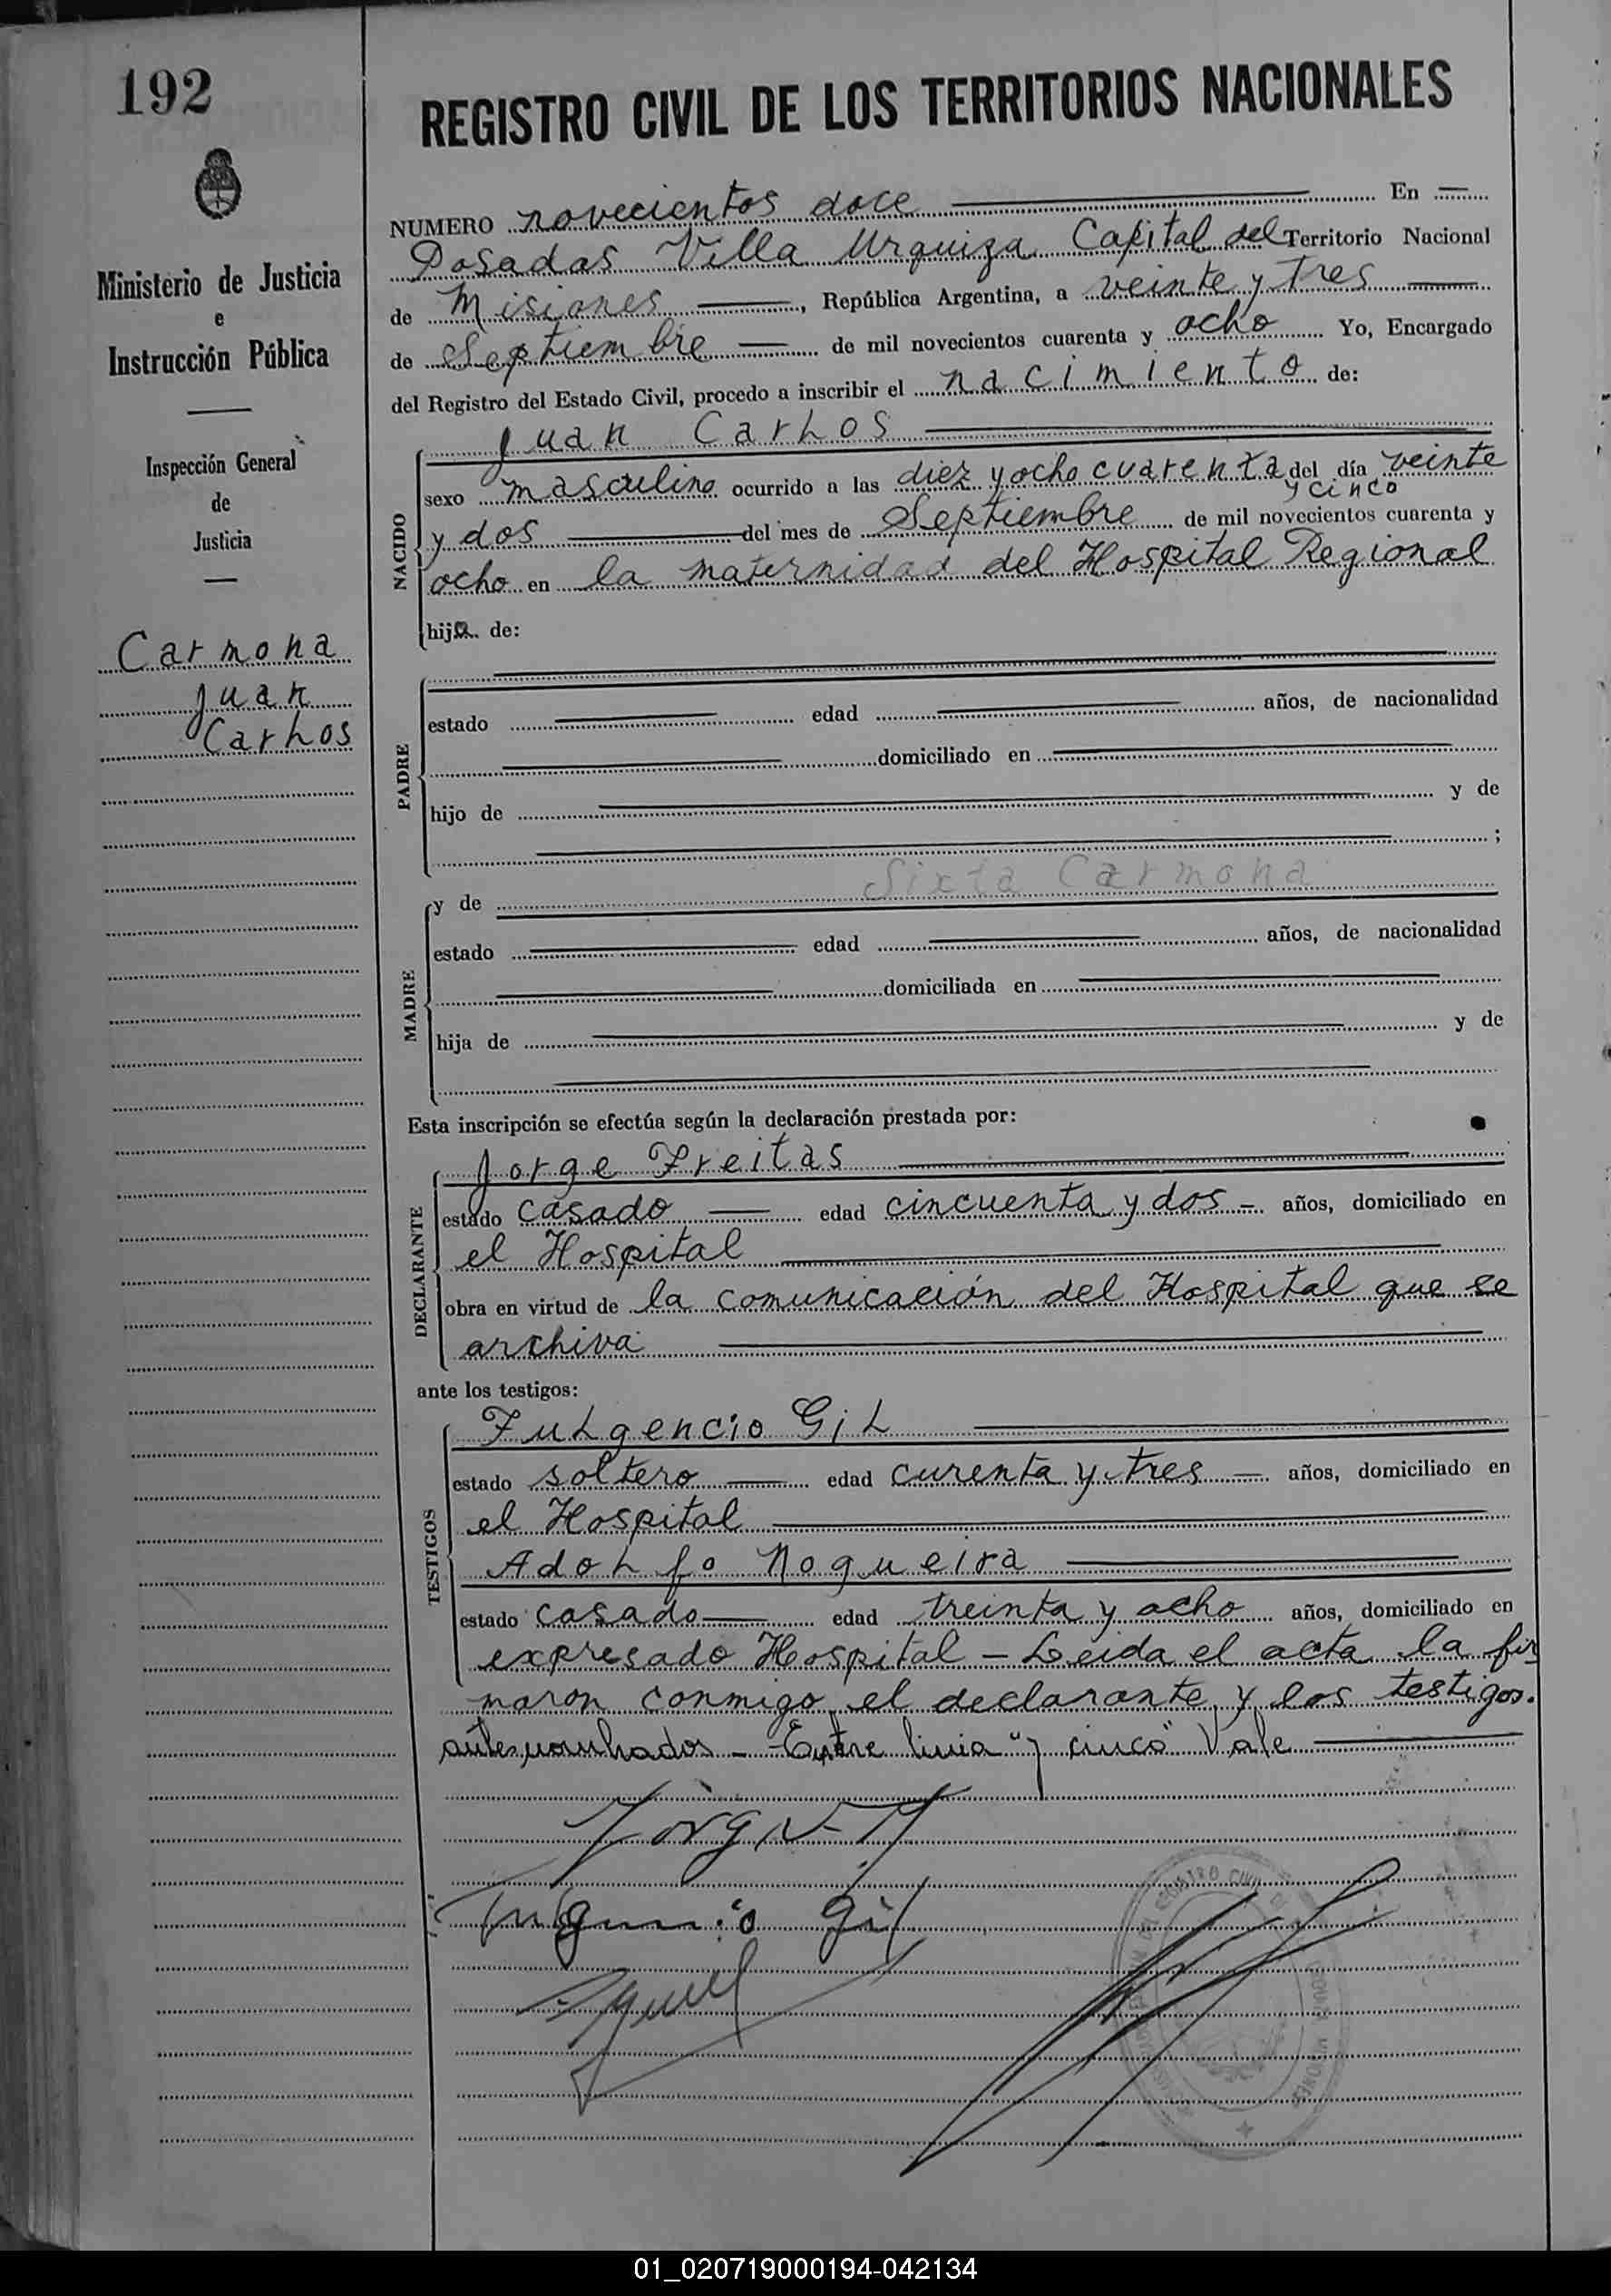 192
Ministerio de Justicia
e
Instrucción Pública
Inspección General
de
Justicia
Carmona
Juan
Carlos
REGISTRO CIVIL DE LOS TERRITORIOS NACIONALES
NUMERO novecientos doce En
Posadas Villa Urquiza Capital del Territorio Nacional
de Misiones, República Argentina, a veinte y tres
de Septiembre de mil novecientos cuarenta y ocho Yo, Encargado
del Registro del Estado Civil, procedo a inscribir el nacimiento de:
NACIDO
Juan Carlos
sexo masculino ocurrido a las diez y ocho cuarenta del día veinte
y cinco
y dos del mes de Septiembre de mil novecientos cuarenta y
ocho en la maternidad del Hospital Regional
hijo de:
PADRE
estado edad años, de nacionalidad
domiciliado en
hijo de y de
;
MADRE
y de Sixta Carmona
estado edad años, de nacionalidad
domiciliada en
hija de y de
Esta inscripción se efectúa según la declaración prestada por:
DECLARANTE
Jorge Freitas
estado casado edad cincuenta y dos - años, domiciliado en
el Hospital
obra en virtud de la comunicación del Hospital que se
archiva
ante los testigos:
TESTIGOS
Fulgencio Gil
estado soltero edad curenta y tres - años, domiciliado en
el Hospital
Adolfo Nogueira
estado casado edad treinta y ocho años, domiciliado en
expresado Hospital - Leida el acta la fir
maron conmigo el declarante y los testigos.
Entre linia "y cinco" Vale
Fulgencio Gil
01_020719000194-042134